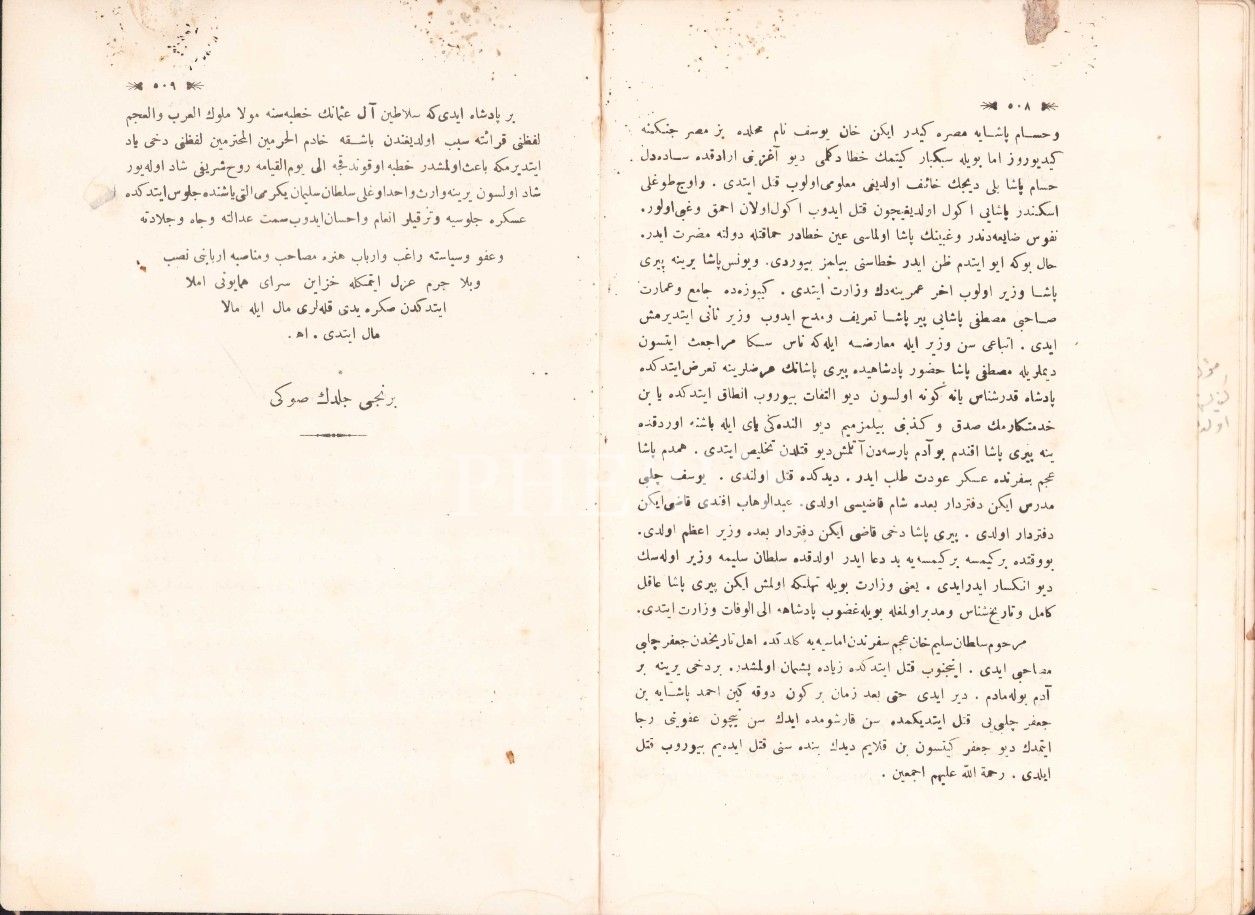 ٥٠٨
وحسام پاشایه مصره كیدر ایكن خان یوسف نام محلده بز مصر جنكنه
كیدیوروز اما بویله سبكبار كیتمك خطا دكلمی دیو آغزینی ارادقده ساده‌دل
حسام پاشا بلی دیجك خائف اولدیغی معلومی اولوب قتل ایتدی . واوج طوغلی
اسكندر پاشایی اكول اولدیغیچون قتل ایدوب اكول اولان احمق وغبی اولور.
نفوس ضایعه‌دندر وغبینك پاشا اولماسی عین خطادر حماقتله دولته مضرت ایدر.
حال بوكه ایو ایتدم ظن ایدر خطاسنی بیلمز بیوردی. ویونس پاشا یرینه پیری
پاشا وزیر اولوب اخر عمرینه‌دك وزارت ایتدی . كبیوزه‌ده جامع وعمارت
صاحبی مصطفی پاشایی پیر پاشا تعریف ومدح ایدوب وزیر ثانی ایتدیرمش
ایدی . اتباعی سن وزیر ایله معارضه ایله‌كه ناس سكا مراجعت ایتسون
دیملریله مصطفی پاشا حضور پادشاهیده پیری پاشانك هر ضلرینه تعرض ایتدكده
پادشاه قدرشناس یانه كونه اولسون دیو التفات بیوروب انطاق ایتدكده یا بن
خدمتكارمك صدق و كذبنی بیلمزمیم دیو النده‌كی یای ایله باشنه اوردقده
ینه پیری پاشا افندم بو آدم پارسه‌دن آتلمش دیو قتلدن تخلیص ایتدی . همدم پاشا
عجم سفرنده عسكر عودت طلب ایدر . دیدكده قتل اولندی . یوسف چلبی
مدرس ایكن دفتردار بعده شام قاضیسی اولدی. عبدالوهاب افندی قاضی ایكن
دفتردار اولدی . پیری پاشا دخی قاضی ایكن دفتردار بعده وزیر اعظم اولدی.
بووقتده بركیمسه بركیمسه‌یه بد دعا ایدر اولدقده سلطان سلیمه وزیر اوله‌سك
دیو انكسار ایدرایدی . یعنی وزارت بویله تهلكه اولمش ایكن پیری پاشا عاقل
كامل وتاریخ‌شناس ومدبر اولمغله بویله غضوب پادشاهه الی الوفات وزارت ایتدی.
مرحوم سلطان سلیم خان عجم سفرندن اماسیه‌یه كلدكده اهل تاریخدن جعفر چلبی
مصاحبی ایدی . اینجنوب قتل ایتدكده زیاده پشمان اولمشدر. بردخی یرینه بر
آدم بوله‌مادم . دیر ایدی حتی بعد زمان بر كون دوقه كین احمد پاشایه بن
جعفر چلبی‌یی قتل ایتدیكمده سن قارشومده ایدك سن نیچون عفوینی رجا
ایتمدك دیو جعفر كیتسون بن قلایم دیدك بنده سنی قتل ایده‌یم بیوروب قتل
ایلدی . رحمة الله علیهم اجمعین .
٥٠٩
بر پادشاه ایدی‌كه سلاطین آل عثمانك خطبه‌سنه مولا ملوك العرب والعجم
لفظنی قرائته سبب اولدیغندن باشقه خادم الحرمین المحترمین لفظنی دخی یاد
ایتدیرمكه باعث اولمشدر خطبه اوقوندقجه الی یوم القیامه روح شریفی شاد اوله‌یور
شاد اولسون یرینه وارث واحد اوغلی سلطان سلیمان یكرمی التی یاشنده جلوس ایتدكده
عسكره جلوسیه وترقیلر انعام واحسان ایدوب سمت عدالته وجاه وجلادته
وعفو وسیاسته راغب وارباب هنره مصاحب ومناصبه اربابنی نصب
وبلا جرم عزل ایتمكله خزاین سرای همایونی املا
ایتدكدن صكره یدی قله‌لری مال ایله مالا
مال ایتدی . اه.
برنجی جلدك صوكی